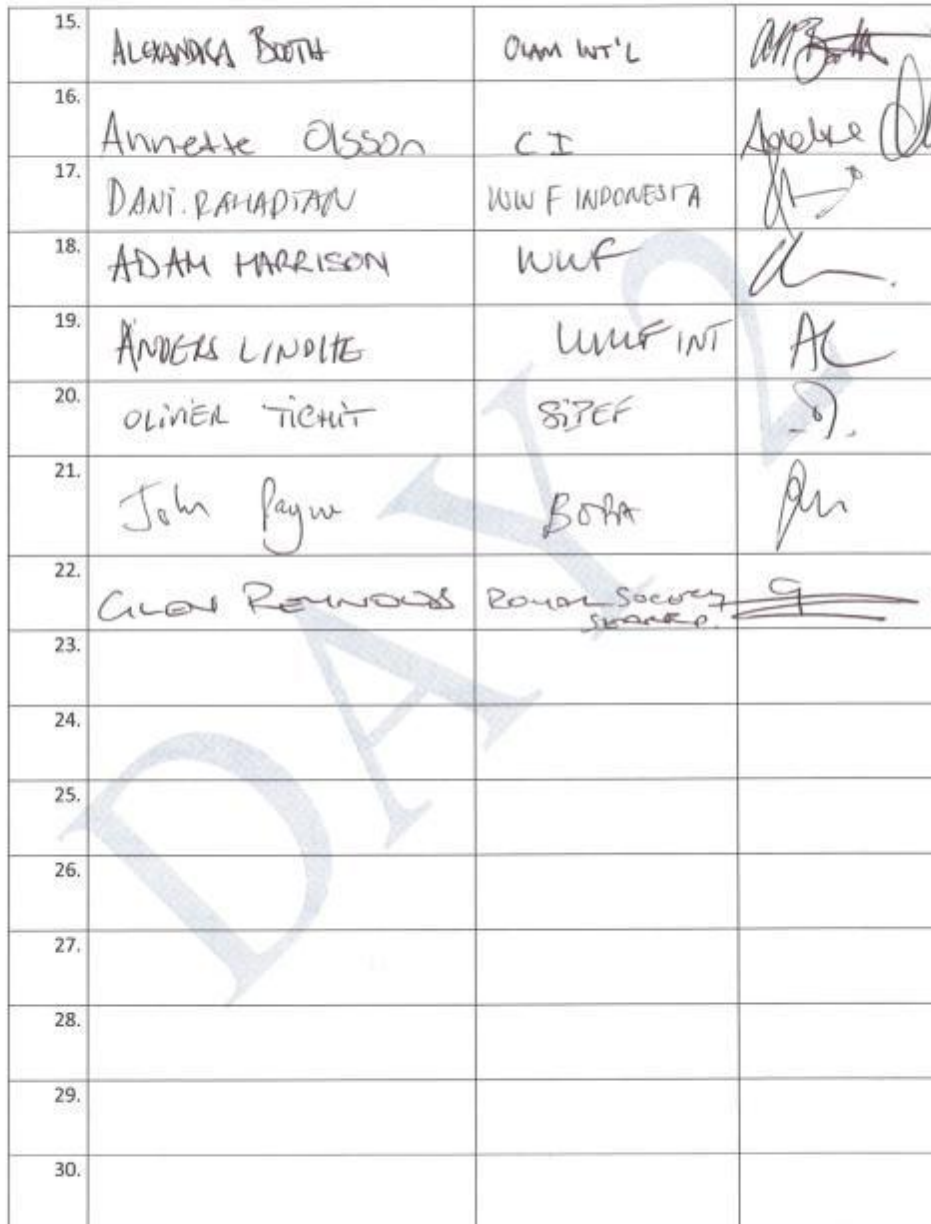 15. ALEXANDRA BOOTH OLAM INT'L
16. Annette Olsson CI
17. DANI. RAHADIAN WWF INDONESIA
18. ADAM HARRISON WWF
19. ANDERS LINDHE WWF INT
20. OLIVIER TICHIT SIPEF
21. John Payne BORA
22. GLEN REYNOLDS ROYAL SOCIETY
SEARRP.
23.
24.
25.
26.
27.
28.
29.
30.
DAY 2